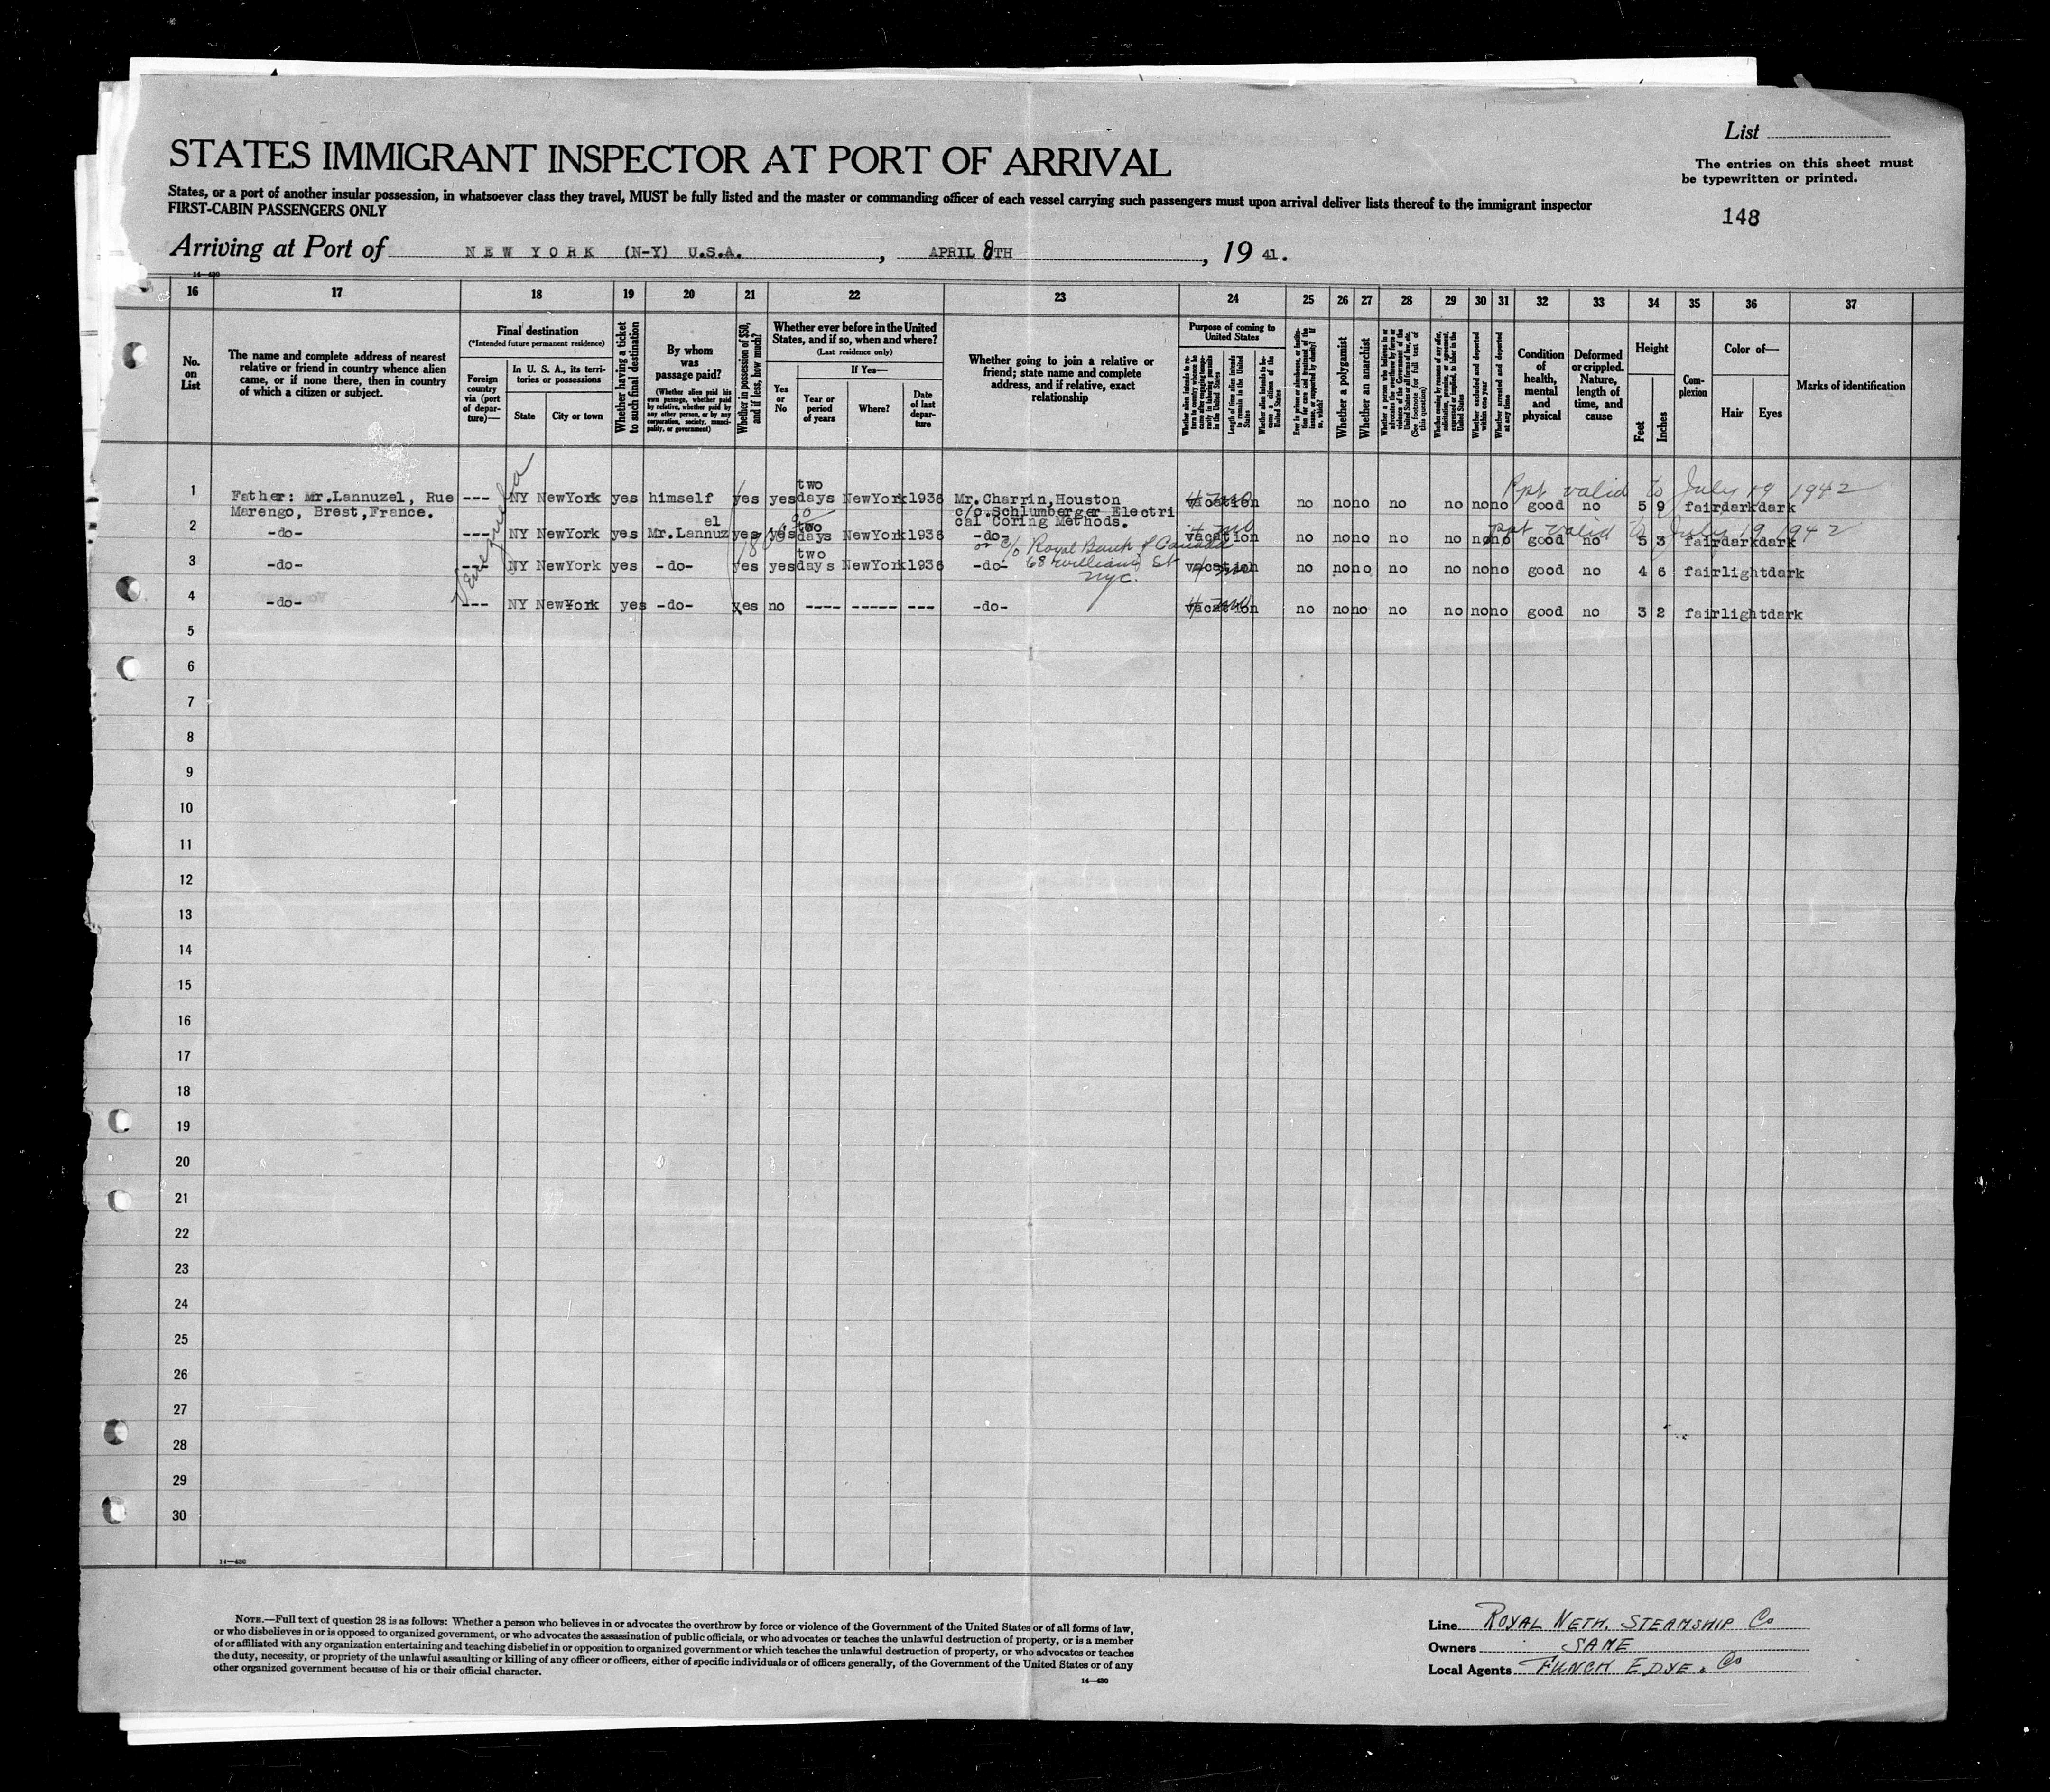 List
STATES IMMIGRANT INSPECTOR AT PORT OF ARRIVAL
The entries on this sheet must
be typewritten or printed.
States, or a port of another insular possession, in whatsoever class they travel, MUST be fully listed and the master or commanding officer of each vessel carrying such passengers must upon arrival deliver lists thereof to the immigrant inspector
FIRST-CABIN PASSENGERS ONLY
148
Arriving at Port of NEW YORK (N-Y) U.S.A., APRIL 8TH, 19 41.
14—430
16 17 18 19 20 21 22 23 24 25 26 27 28 29 30 31 32 33 34 35 36 37
No. on List
The name and complete address of nearest relative or friend in country whence alien came, or if none there, then in country of which a citizen or subject.
Final destination
(*Intended future permanent residence)
Foreign country via (port of departure)—
In U. S. A., its territories or possessions
State
City or town
Whether having a ticket to such final destination
By whom was passage paid?
(Whether alien paid his own passage, whether paid by relative, whether paid by any other person, or by any corporation, society, municipality, or government)
Whether in possession of $50, and if less, how much?
Whether ever before in the United States, and if so, when and where?
(Last residence only)
Yes or No
If Yes—
Year or period of years
Where?
Date of last departure
Whether going to join a relative or friend; state name and complete address, and if relative, exact relationship
Purpose of coming to United States
Length of time alien intends to remain in the United States
Whether a polygamist
Whether an anarchist
Condition of health, mental and physical
Deformed or crippled. Nature, length of time, and cause
Height
Feet
Inches
Complexion
Color of—
Hair
Eyes
Marks of identification
Venezuela
Ppt valid to July 19 1942
1 Father: Mr.Lannuzel, Rue --- NY NewYork yes himself yes yes two days NewYork 1936 Mr.Charrin,Houston vacation no no no no no no no good no 5 9 fair dark dark
Marengo, Brest,France. c/o.Schlumberger Electri
cal Coring Methods.
ppt valid to July 19 1942
2 -do- --- NY NewYork yes Mr.Lannuzel yes yes two days NewYork 1936 -do- vacation no no no no no no no good no 5 3 fair dark dark
or c/o Royal Bank of Canada
3 -do- --- NY NewYork yes -do- yes yes two days NewYork 1936 -do- vacation no no no no no no no good no 4 6 fair light dark
68 William St
NYC.
4 -do- --- NY NewYork yes -do- yes no ---- ----- --- -do- vacation no no no no no no no good no 3 2 fair light dark
5
6
7
8
9
10
11
12
13
14
15
16
17
18
19
20
21
22
23
24
25
26
27
28
29
30
14—430
NOTE.—Full text of question 28 is as follows: Whether a person who believes in or advocates the overthrow by force or violence of the Government of the United States or of all forms of law,
or who disbelieves in or is opposed to organized government, or who advocates the assassination of public officials, or who advocates or teaches the unlawful destruction of property, or is a member
of or affiliated with any organization entertaining and teaching disbelief in or opposition to organized government or which teaches the unlawful destruction of property, or who advocates or teaches
the duty, necessity, or propriety of the unlawful assaulting or killing of any officer or officers, either of specific individuals or of officers generally, of the Government of the United States or of any
other organized government because of his or their official character.
14—430
Line ROYAL NETH. STEAMSHIP Co
Owners SAME
Local Agents FUNCH EDYE. & Co